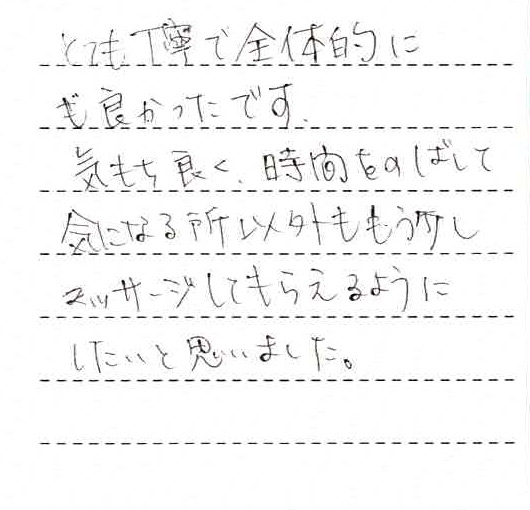 とても丁寧で全体的に
も良かったです。
気もち良く、時間をのばして
気になる所以外ももう少し
マッサージしてもらえるように
したいと思いました。